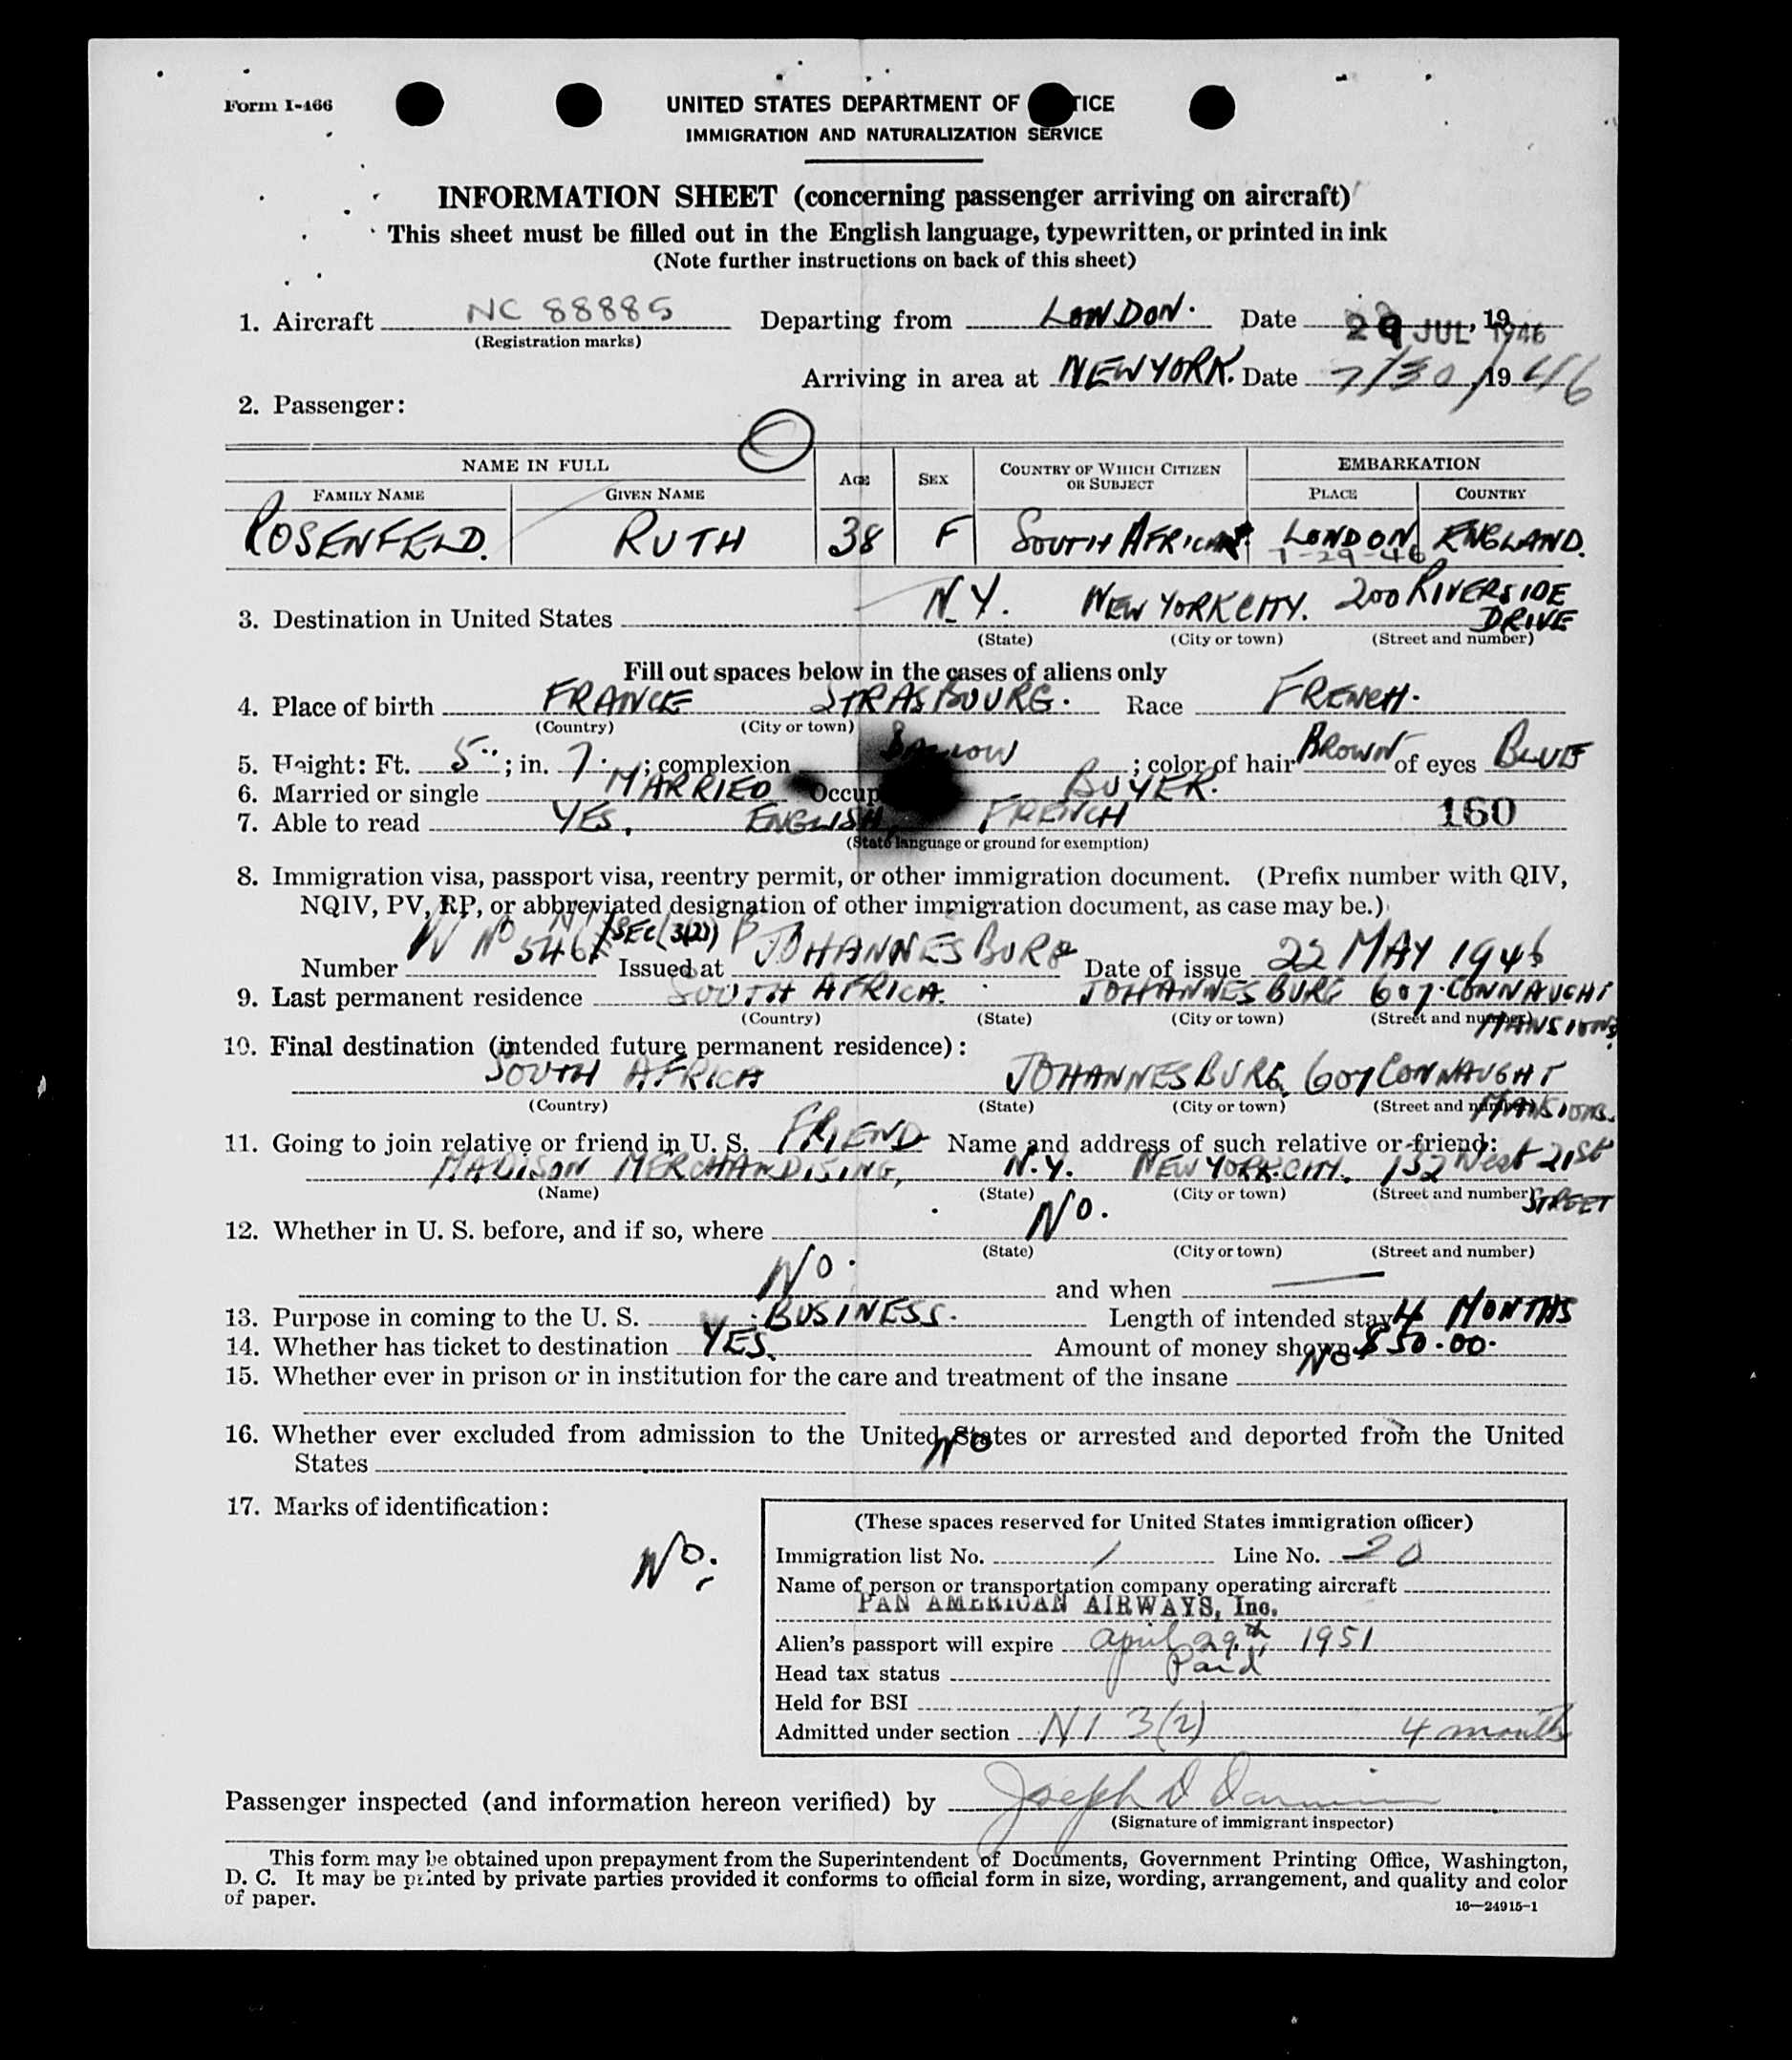 Form I-466
UNITED STATES DEPARTMENT OF TICE
IMMIGRATION AND NATURALIZATION SERVICE
INFORMATION SHEET (concerning passenger arriving on aircraft)
This sheet must be filled out in the English language, typewritten, or printed in ink
(Note further instructions on back of this sheet)
1. Aircraft NC 88885 Departing from LONDON. Date 29 JUL 1946, 19
(Registration marks)
Arriving in area at NEW YORK. Date 7/30, 1946
2. Passenger:
NAME IN FULL AGE SEX COUNTRY OF WHICH CITIZEN OR SUBJECT EMBARKATION
FAMILY NAME GIVEN NAME PLACE COUNTRY
ROSENFELD. RUTH 38 F SOUTH AFRICAN. LONDON ENGLAND.
7-29-46
3. Destination in United States N.Y. NEW YORK CITY. 200 RIVERSIDE DRIVE
(State) (City or town) (Street and number)
Fill out spaces below in the cases of aliens only
4. Place of birth FRANCE STRASBOURG. Race FRENCH.
(Country) (City or town)
5. Height: Ft. 5 ; in. 7. ; complexion ; color of hair BROWN of eyes BLUE
6. Married or single MARRIED Occup BUYER.
7. Able to read YES. ENGLISH, FRENCH 160
(State language or ground for exemption)
8. Immigration visa, passport visa, reentry permit, or other immigration document. (Prefix number with QIV,
NQIV, PV, RP, or abbreviated designation of other immigration document, as case may be.)
Number SEC 3(2) Issued at JOHANNESBURG Date of issue 22 MAY 1946
9. Last permanent residence SOUTH AFRICA. JOHANNESBURG 607 CONNAUGHT
(Country) (State) (City or town) (Street and number) MANSIONS.
10. Final destination (intended future permanent residence):
SOUTH AFRICA JOHANNESBURG. 607 CONNAUGHT
(Country) (State) (City or town) (Street and number) MANSIONS.
11. Going to join relative or friend in U. S. FRIEND Name and address of such relative or friend:
MADISON MERCHANDISING, N.Y. NEW YORK CITY. 132 West 21st
(Name) (State) (City or town) (Street and number) STREET
12. Whether in U. S. before, and if so, where NO.
(State) (City or town) (Street and number)
NO. and when —
13. Purpose in coming to the U. S. BUSINESS. Length of intended stay 4 MONTHS
14. Whether has ticket to destination YES. Amount of money shown $50.00.
15. Whether ever in prison or in institution for the care and treatment of the insane NO
16. Whether ever excluded from admission to the United States or arrested and deported from the United
States NO
17. Marks of identification:
NO.
(These spaces reserved for United States immigration officer)
Immigration list No. 1 Line No. 20
Name of person or transportation company operating aircraft
PAN AMERICAN AIRWAYS, Inc.
Alien's passport will expire April 29th, 1951
Head tax status Paid
Held for BSI
Admitted under section NI 3(2) 4 months
Passenger inspected (and information hereon verified) by Joseph D
(Signature of immigrant inspector)
This form may be obtained upon prepayment from the Superintendent of Documents, Government Printing Office, Washington,
D. C. It may be printed by private parties provided it conforms to official form in size, wording, arrangement, and quality and color
of paper.
16—24915-1